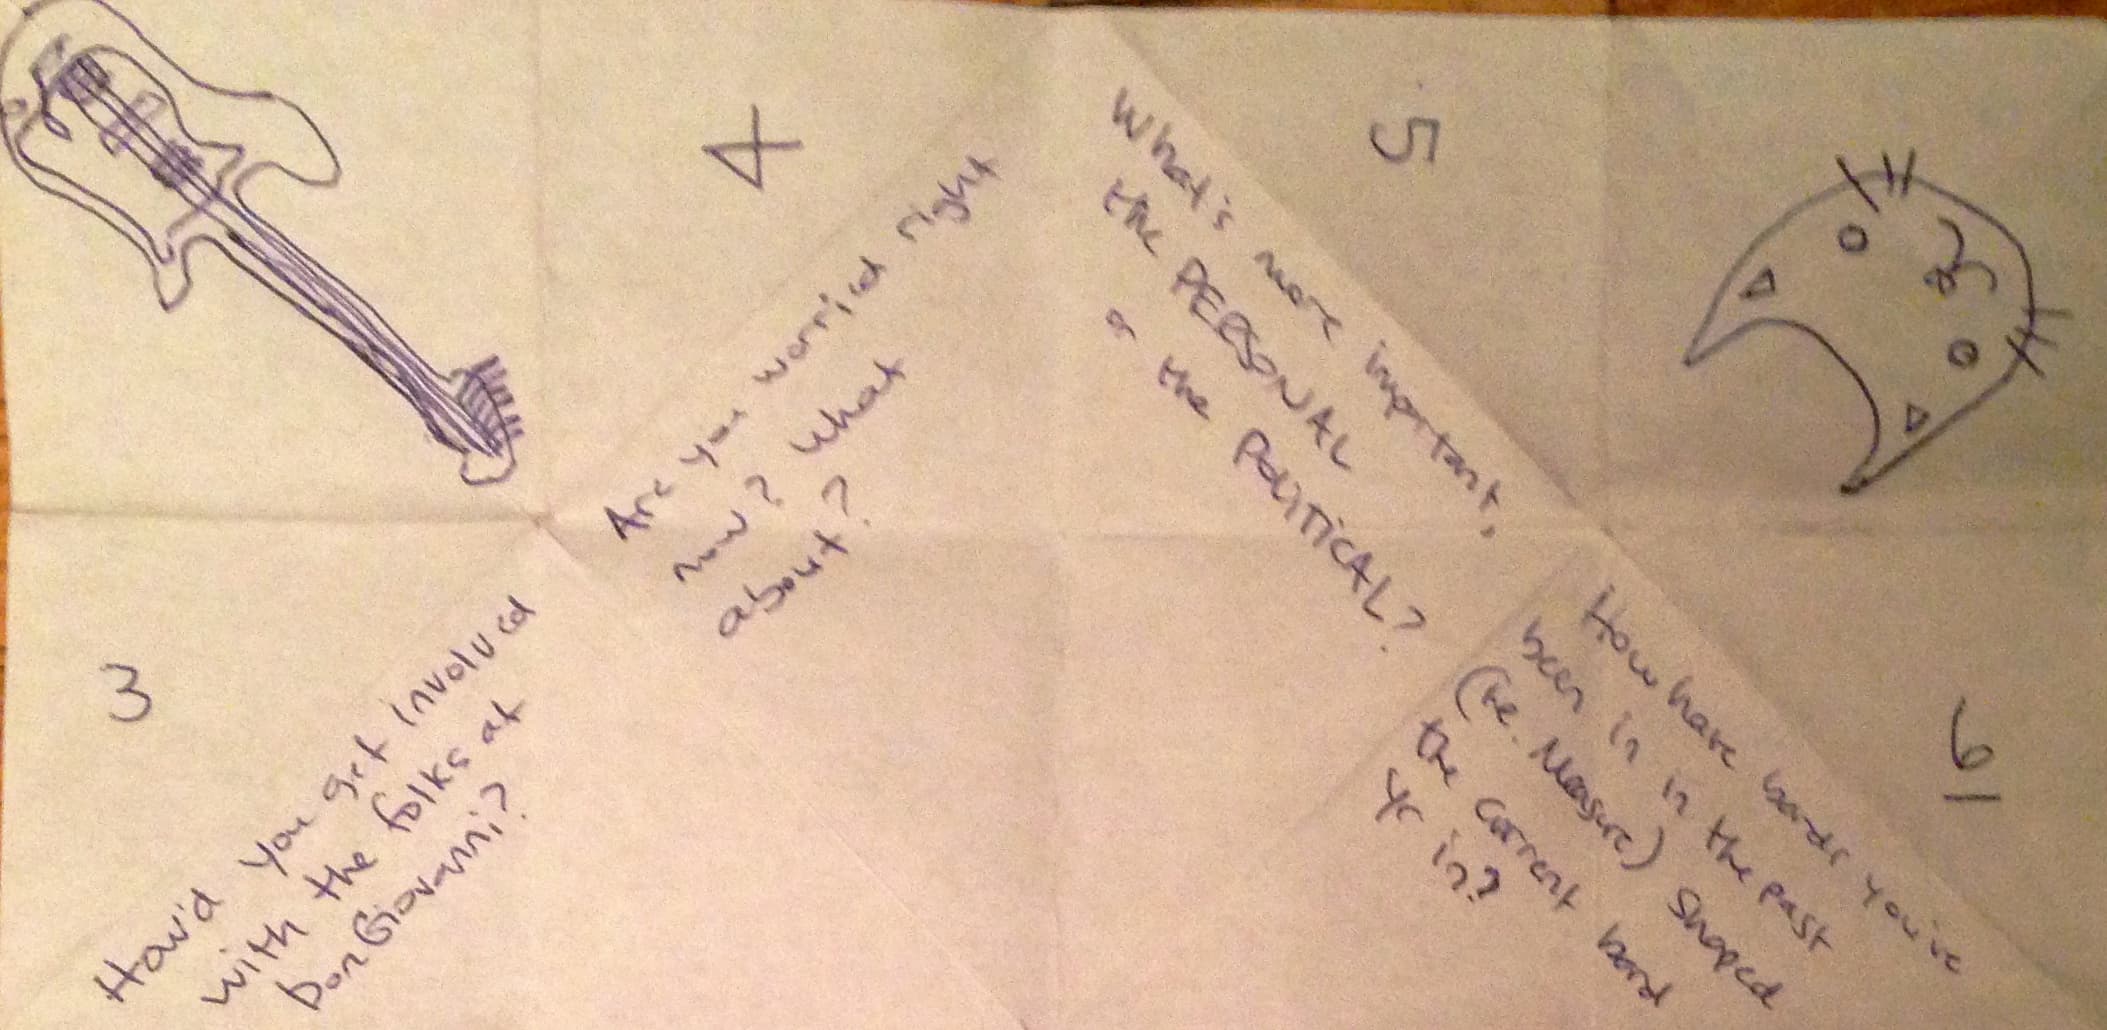 3
How'd you get involved
with the folks at
Don Giovanni?
4
Are you worried right
now? What
about?
5
What's more important,
the PERSONAL
or the POLITICAL?
6
How have bands you've
been in in the past
(ie. Measure) shaped
the current band
yr in?